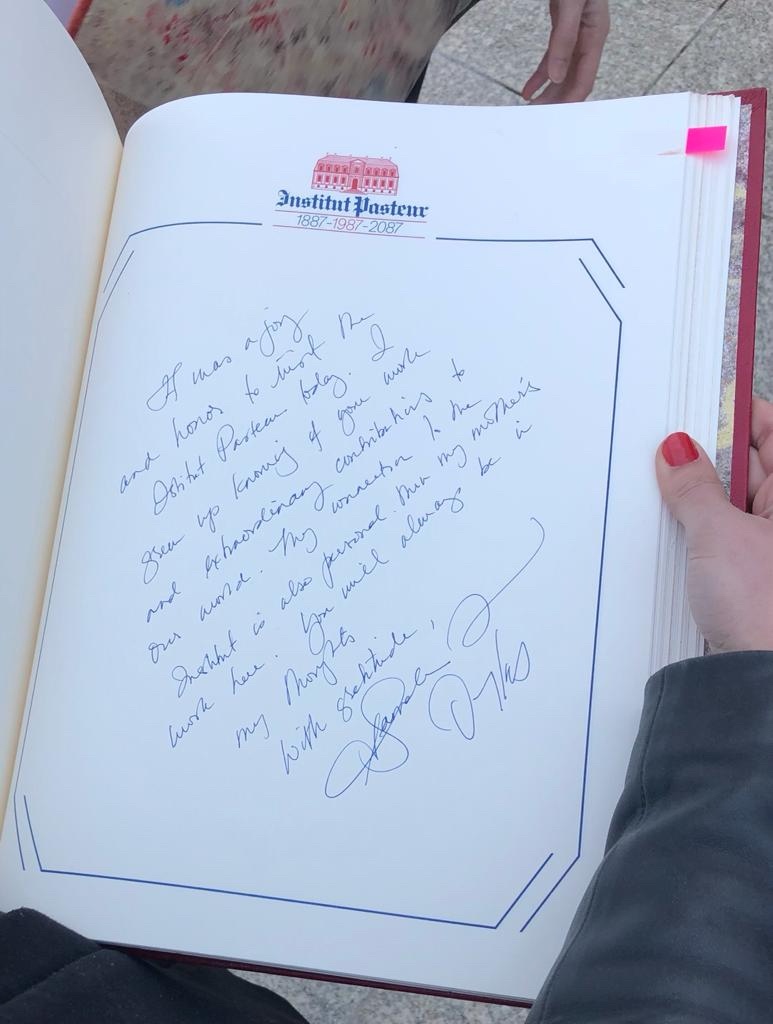 Institut Pasteur
1887-1987-2087
It was a joy
and honor to visit the
Institut Pasteur today. I
grew up knowing of your work
and extraordinary contributions to
our world. My connection to the
Institut is also personal. thru my mother's
work here. You will always be in
my thoughts
With gratitude,